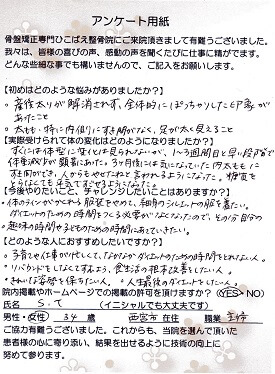 アンケート用紙
骨盤矯正専門ひこばえ整骨院にご来院頂きまして有難うございました。
我々は、皆様の喜びの声、感動の声を聞くたびに仕事に精がでます。
どんな些細な事でも構いませんので、ご記入をお願いします。
【初めはどのようなお悩みがありましたか?】
・産後太りが解消されず、全体的にぽっちゃりした印象が
あったこと
・太もも・特に内側にすき間がなく、足が太く見えること
【実際受けられて体の変化はどのようになりましたか?】
すぐには体型に変化は見られないが、1〜3週間目と早い段階で
体重減少が顕著にあった。3ヶ月後には気になっていた内太ももに
すき間ができ、人からもやせたねと言われるようになった。糖質を
とらなくても平気でいられるようになった。
【今後やりたいこと、チャレンジしたいことはありますか?】
・体のラインがかくれる服装をやめて、細身のシルエットの服を着たい。
ダイエットのための時間をつくる必要がなくなったので、その分自分の
趣味の時間や子どものための時間にあてていきたい。
【どのような人におすすめしたいですか?】
・子育てや仕事が忙しくて、なかなかダイエットのための時間をとれない人。
・リバウンドをしなくてすむよう、食生活の根本改善をしたい人。
・きれいな姿勢を保ちたい人。・人生最後のダイエットにしたい人。
院内掲載やホームページでの掲載の許可を頂けますか?(YES・NO)
氏名 S.T (イニシャルでも大丈夫です)
男性・女性 34 歳 西宮市 在住 職業 主婦
ご協力有難うございました。これからも、当院を選んで頂いた
患者様の心に寄り添い、結果を出せるように技術の向上に
努めて参ります。